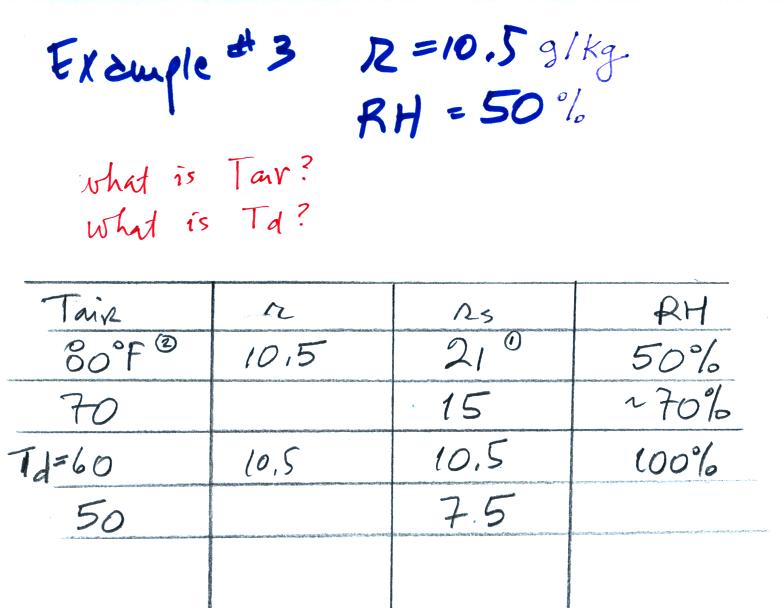 Example #3 r = 10.5 g/kg
RH = 50%
what is Tair?
what is Td?
Tair r rs RH
80°F ② 10.5 21 ① 50%
70 15 ~70%
Td=60 10.5 10.5 100%
50 7.5